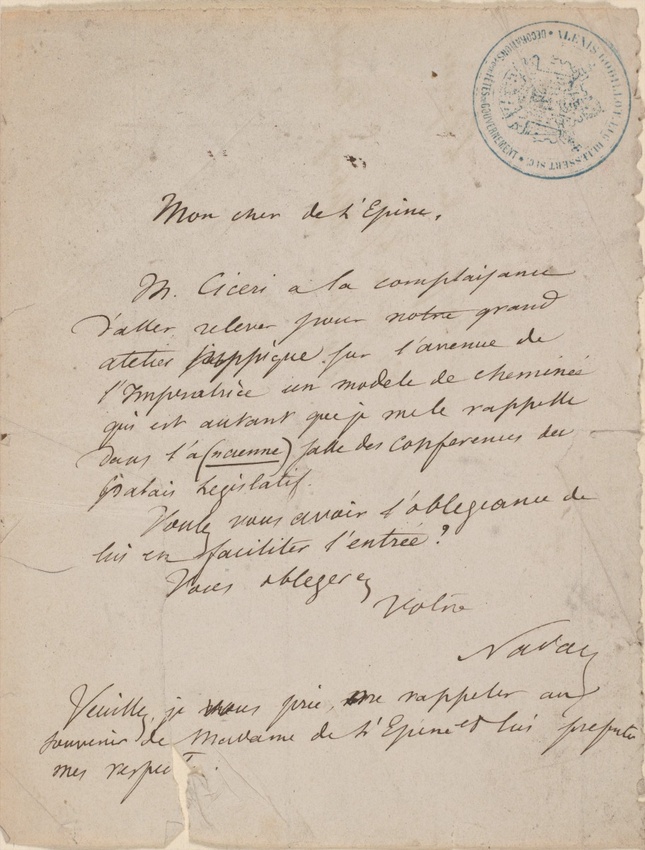 ALEXIS GODILLOT BELESSERT SUC. • DECORATIONS DES FÊTES DU GOUVERNEMENT •
Mon cher de L'Epine,
M. Ciceri a la complaisance
d'aller relever pour notre grand
atelier hippique sur l'avenue de
l'Impératrice un modele de cheminée
qui est autant que je me le rappelle
dans l'a(ncienne) salle des conferences du
Palais Législatif.
Voulez vous avoir l'oblegeance de
lui en faciliter l'entrée?
Vous oblegerez
Votre
Nadar
Veuillez, je vous prie, me rappeler au
souvenir de Madame de L'Epine et lui presenter
mes respects.